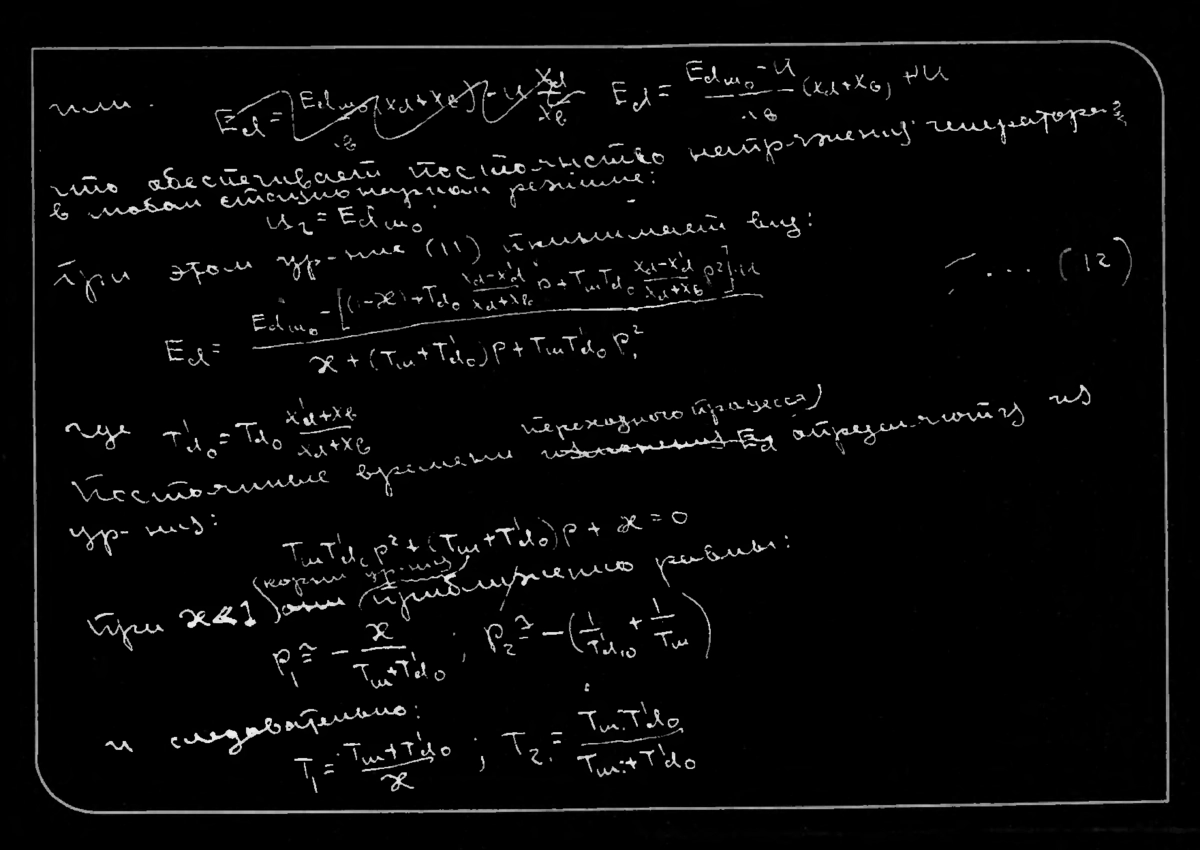 или.
E_d = E_dш₀ (x_d+x_в) - u x_d/x_в   E_d = (E_dш₀ - u)/x_в (x_d+x_в) + u
что обеспечивает постоянство напряжения генератора
в любом стационарном режиме:
u_г = E_dш₀
При этом ур-ние (11) принимает вид:
E_d = (E_dш₀ - [(1-ϰ) + T_d₀ (x_d-x'_d)/(x_d+x_в) p + T_ш T_d₀ (x_d-x'_d)/(x_d+x_в) p²] u) / (ϰ + (T_ш+T'_d₀)p + T_ш T'_d₀ p²) ... (12)
где T'_d₀ = T_d₀ (x'_d+x_в)/(x_d+x_в)
переходного процесса
Постоянные времени изменения E_d определяются из
ур-ния:
T_ш T'_d₀ p² + (T_ш+T'_d₀)p + ϰ = 0
(корни ур-ния)
При ϰ≪1 они приближенно равны:
p₁ ≅ - ϰ/(T_ш+T'_d₀) ; p₂ ≅ -(1/T'_d₀ + 1/T_ш)
и следовательно:
T₁ = (T_ш+T'_d₀)/ϰ ; T₂ = T_ш T'_d₀/(T_ш+T'_d₀)